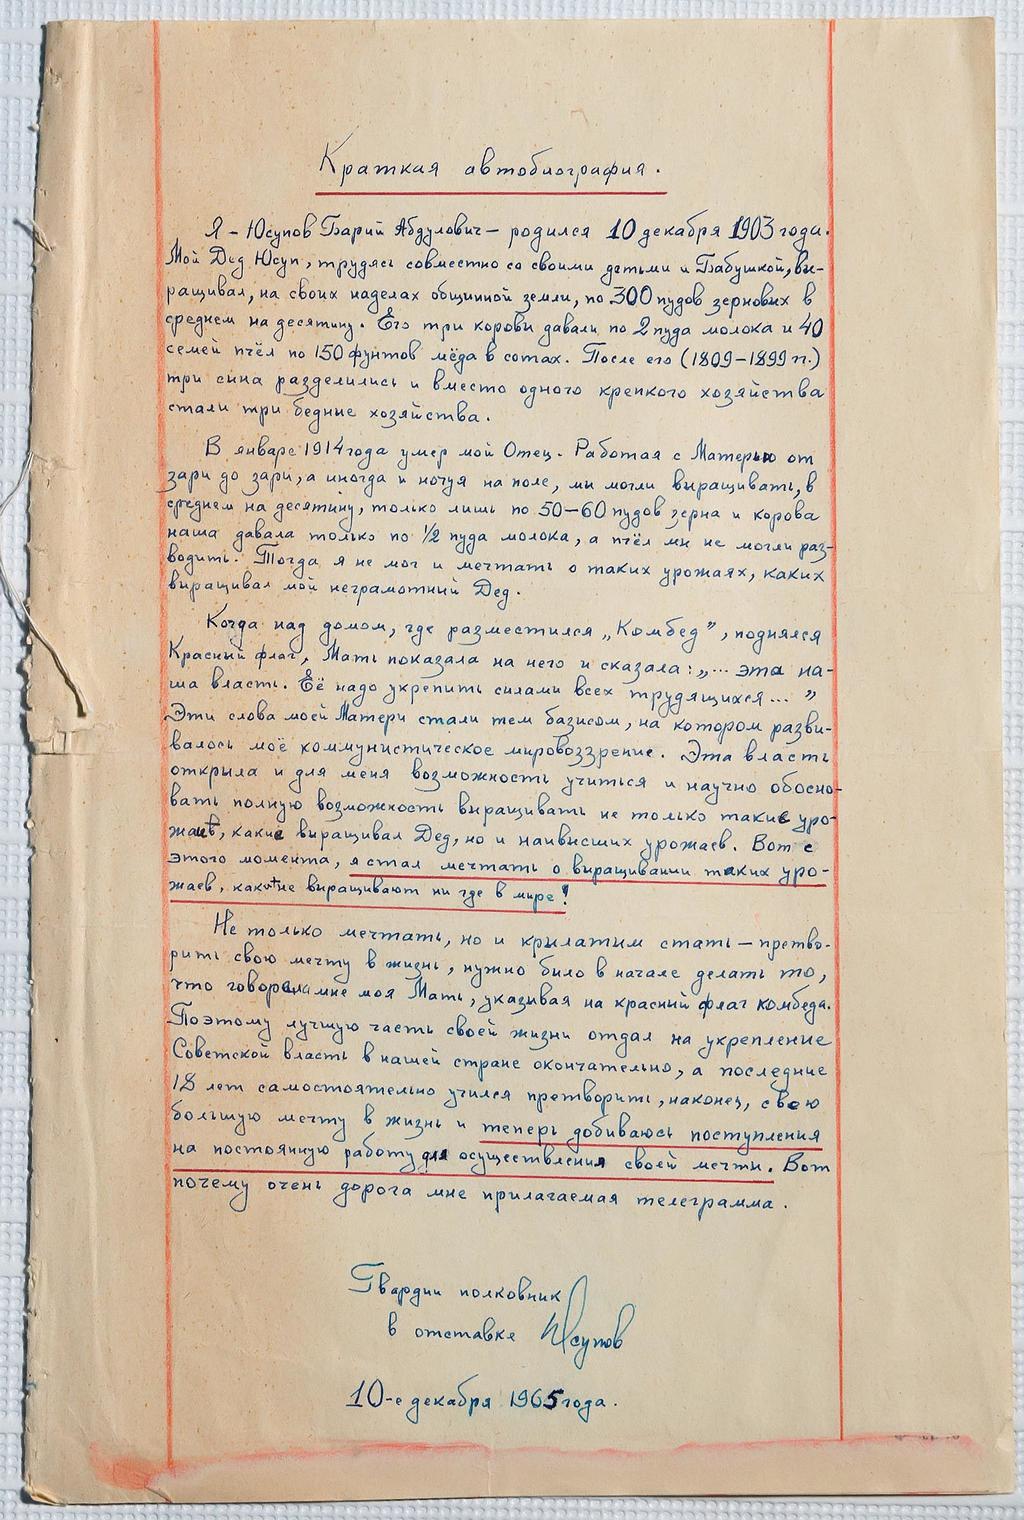 Краткая автобиография.
Я – Юсупов Барий Абдулович – родился 10 декабря 1903 года.
Мой Дед Юсуп, трудясь совместно со своими детьми и Бабушкой, вы-
ращивал, на своих наделах общинной земли, по 300 пудов зерновых в
среднем на десятину. Его три коровы давали по 2 пуда молока и 40
семей пчёл по 150 фунтов мёда в сотах. После его (1809–1899 гг.)
три сына разделились и вместо одного крепкого хозяйства
стали три бедные хозяйства.
В январе 1914 года умер мой Отец. Работая с Матерью от
зари до зари, а иногда и ночуя на поле, мы могли выращивать, в
среднем на десятину, только лишь по 50–60 пудов зерна и корова
наша давала только по 1/2 пуда молока, а пчёл мы не могли раз-
водить. Тогда я не мог и мечтать о таких урожаях, каких
выращивал мой неграмотный Дед.
Когда над домом, где разместился „Комбед”, поднялся
Красный флаг, Мать показала на него и сказала: „... эта на-
ша власть. Её надо укрепить силами всех трудящихся... ”
Эти слова моей Матери стали тем базисом, на котором разви-
валось моё коммунистическое мировоззрение. Эта власть
открыла и для меня возможность учиться и научно обосно-
вать полную возможность выращивать не только такие уро-
жаев, какие выращивал Дед, но и наивысших урожаев. Вот с
этого момента, я стал мечтать о выращивании таких уро-
жаев, какие не выращивают ни где в мире!
Не только мечтать, но и крылатым стать – претво-
рить свою мечту в жизнь, нужно было в начале делать то,
что говорила мне моя Мать, указывая на красный флаг комбеда.
Поэтому лучшую часть своей жизни отдал на укрепление
Советской власть в нашей стране окончательно, а последние
18 лет самостоятельно учился претворить, наконец, свою
большую мечту в жизнь и теперь добиваюсь поступления
на постоянную работу для осуществления своей мечты. Вот
почему очень дорога мне прилагаемая телеграмма.
Гвардии полковник
в отставке Юсупов
10-е декабря 1965 года.